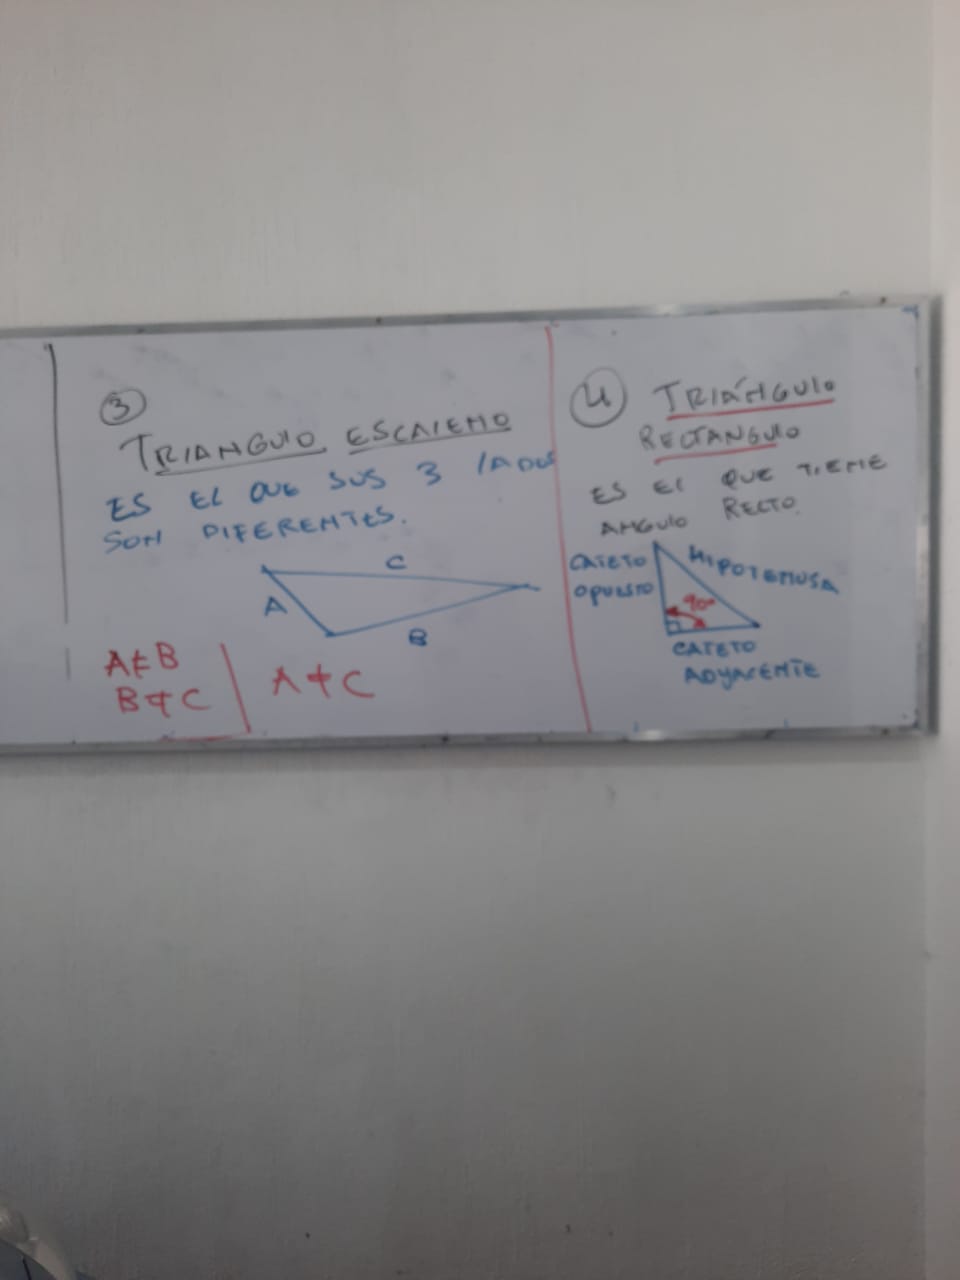 3
TRIANGULO ESCALENO
ES EL QUE SUS 3 LADOS
SON DIFERENTES.
C
A
B
A≠B
B≠C
A≠C
4 TRIÁNGULO
RECTANGULO
ES EL QUE TIENE
ANGULO RECTO.
CATETO
OPUESTO
HIPOTENUSA
90°
CATETO
ADYACENTE